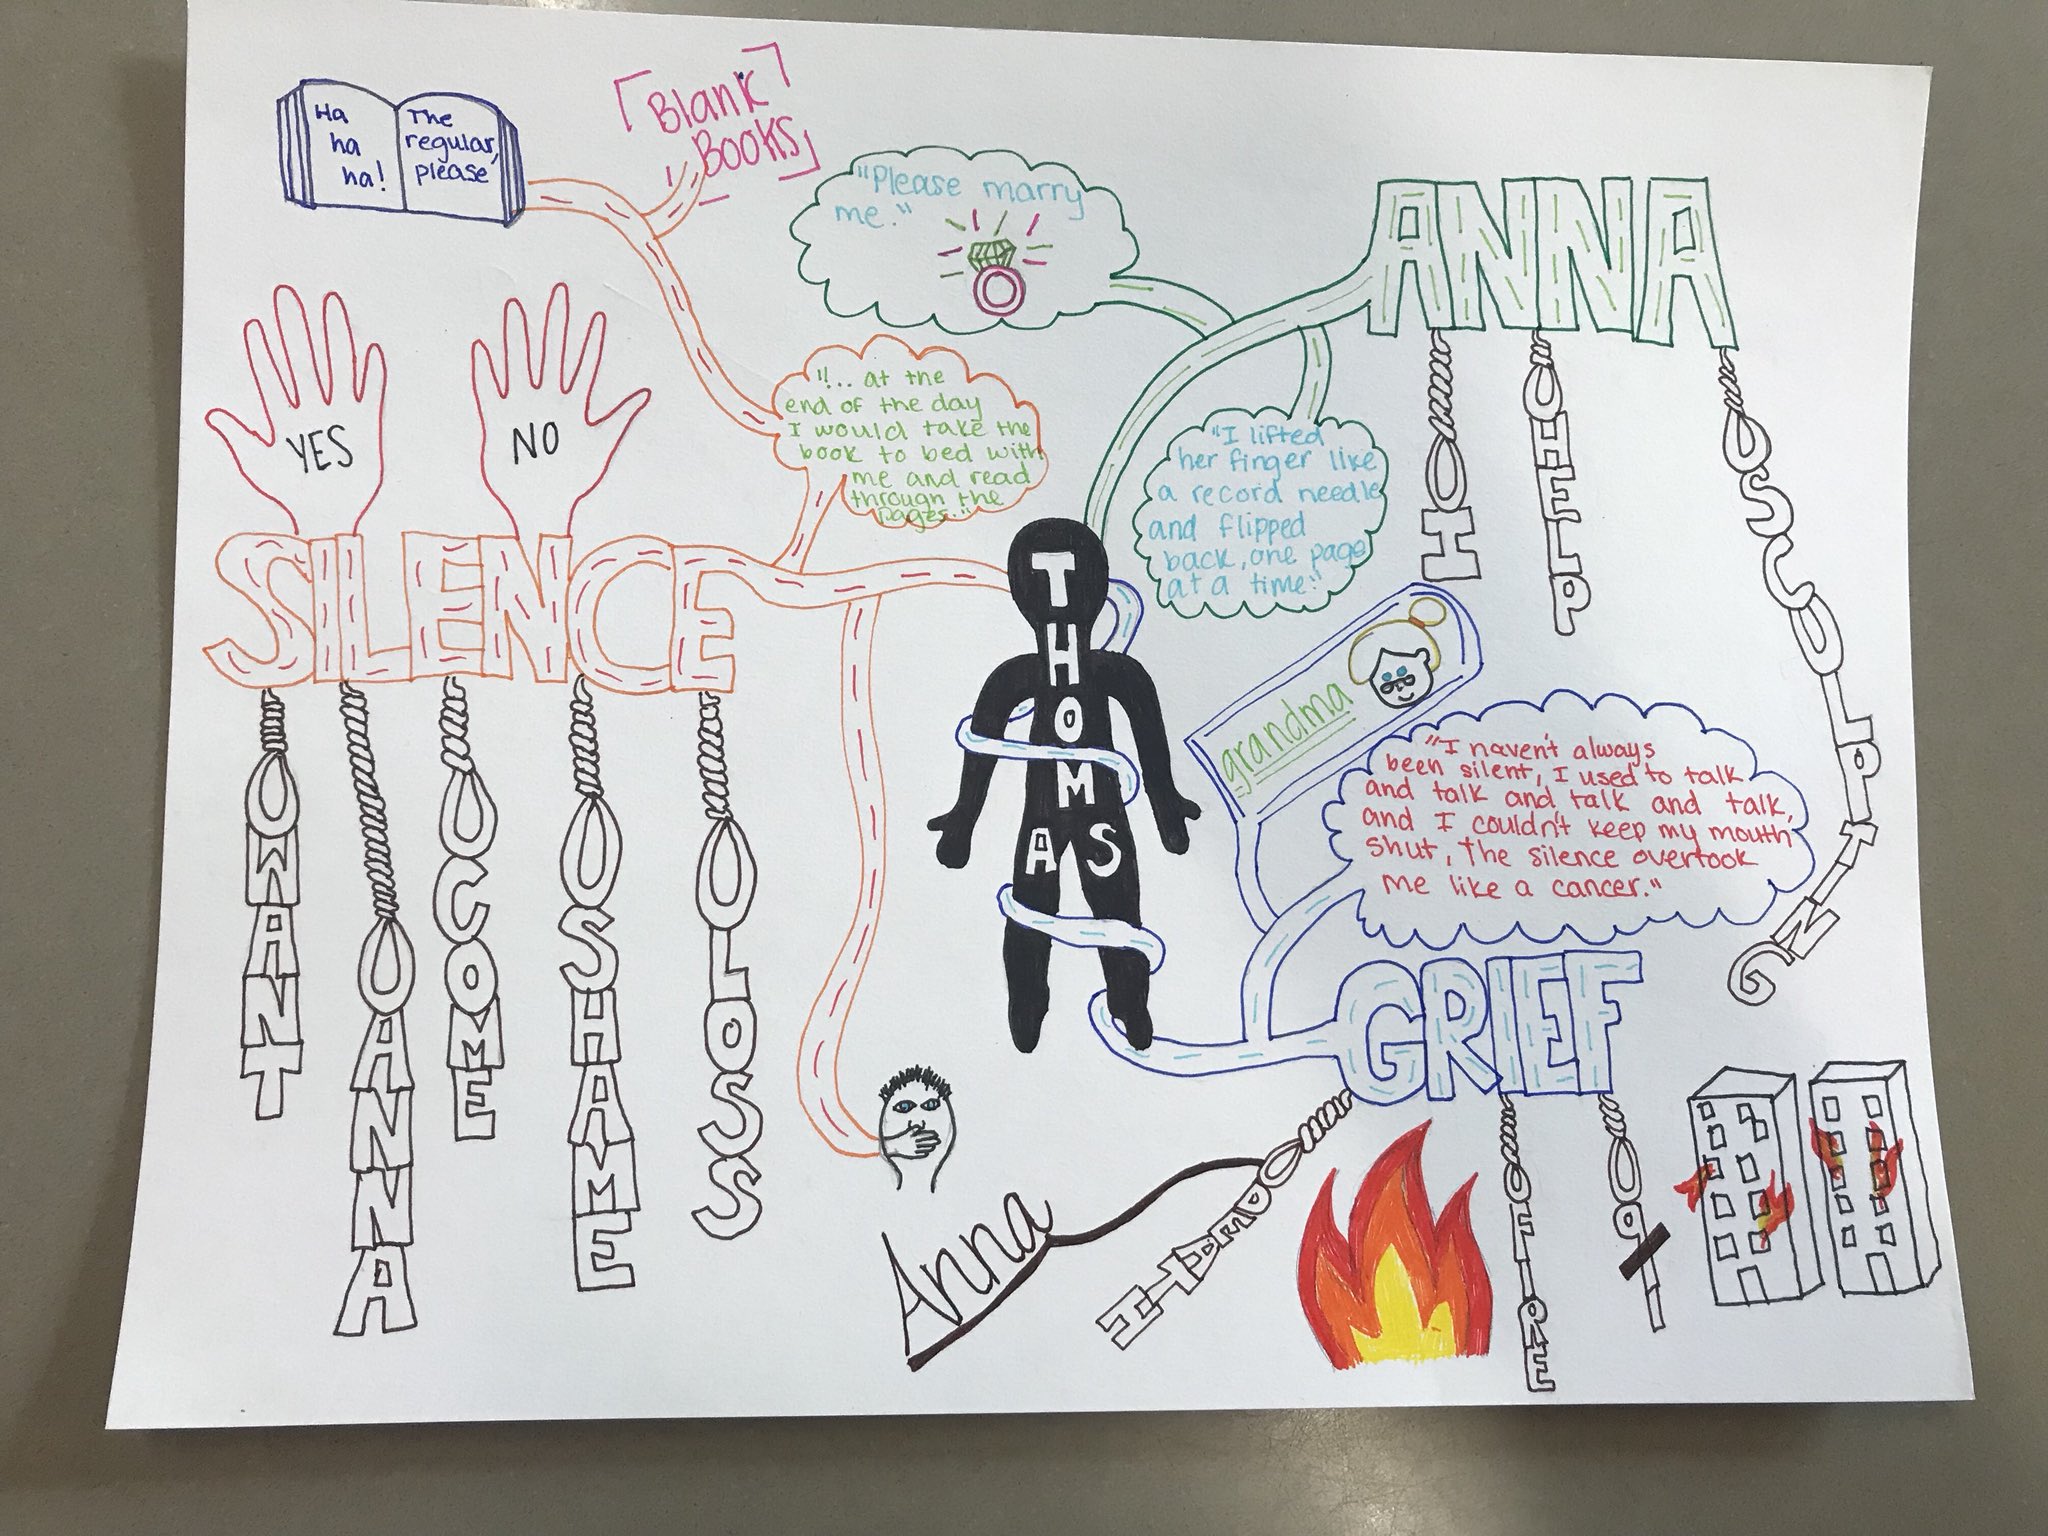 Ha
ha
ha!
The
regular,
please
Blank
Books
"Please marry
me."
ANNA
YES
NO
"... at the
end of the day
I would take the
book to bed with
me and read
through the
pages..."
"I lifted
her finger like
a record needle
and flipped
back, one page
at a time."
HELP
SCULPTING
SILENCE
THOMAS
grandma
"I haven't always
been silent, I used to talk
and talk and talk and talk,
and I couldn't keep my mouth
shut, the silence overtook
me like a cancer."
WANT
ANNA
COME
SHAME
LOSS
GRIEF
Anna